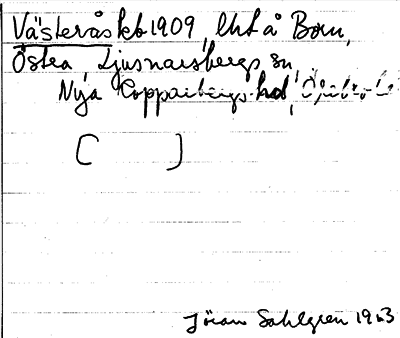 Västerås kb 1909, Uht å Born,
Östra Ljusnarsbergs sn
Nya Kopparbergs hd, Örebro l
[ ]
Jöran Sahlgren 1963